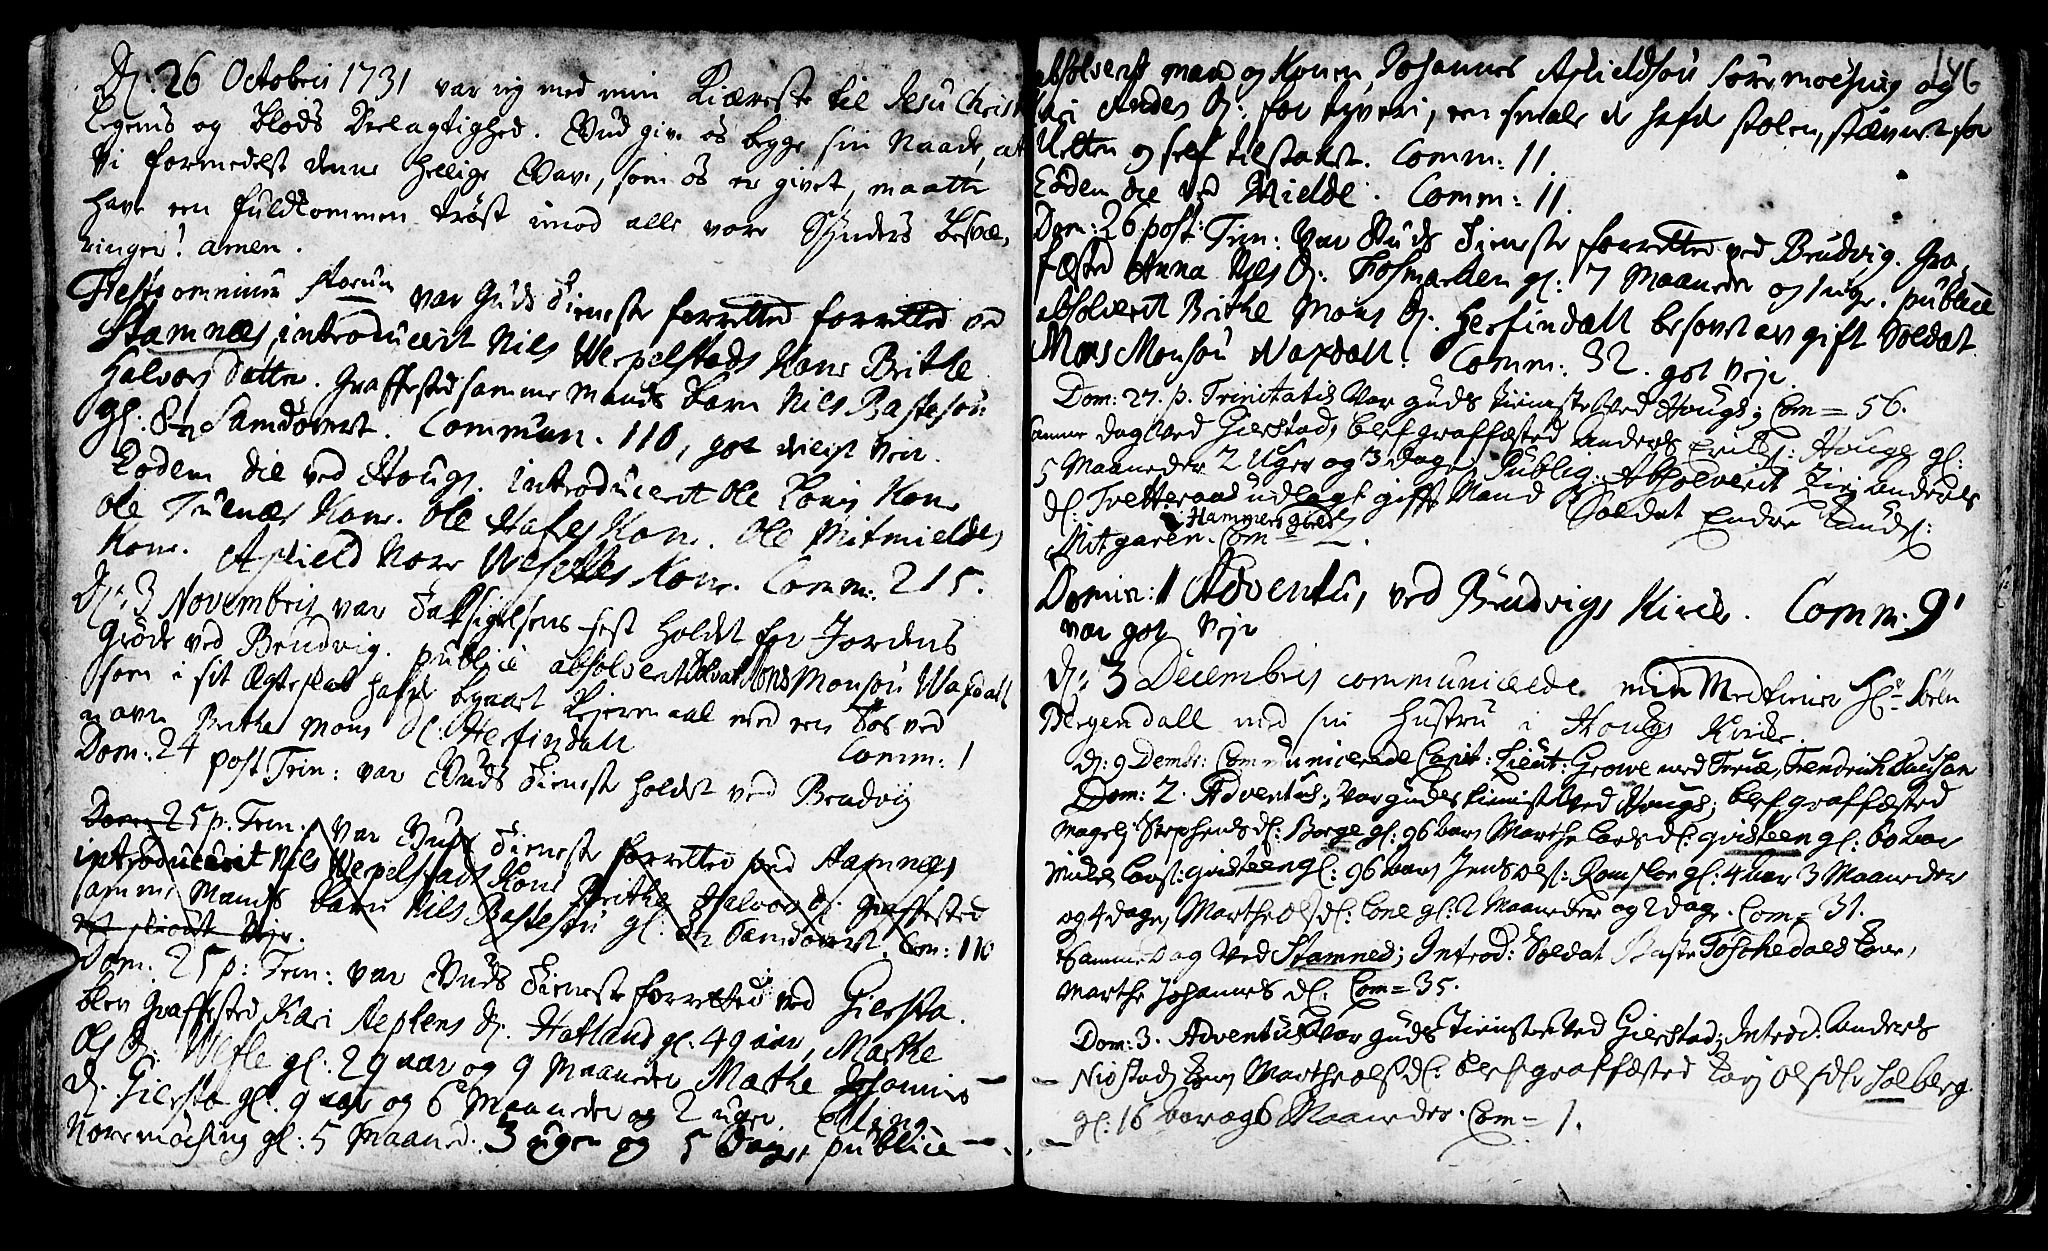 Dj. 26 Octobris 1731 var jeg med min Kiæreste til Jesu Christi
Legems og Blods Deelagtighed. Gud give os begge sin Naade, at
vi formedelst denne hellige Gave, som os er givet, maatte
have een fuldkommen trøst imod alle vore Synders Besvæ,
ringer! amen.
Festo omnium storum var Guds Tieneste forretted forrettet ved
Stamnæs, introducerit Nils Werpelstads Kone Brithe
Halvors datter. Graffested samme Mands Barn Nils Basteson
gl: 8 Samdøvert. Commun. 110, got vejr.
Eodem die ved Hougs. introducerit Ole Kone
Ole Tuenæs Kone. Ole Hafes Kone. Ole Mitmieldes
Kone. Askield Nore Kone. Comm: 215.
Dj. 3 Novembris var Taksigelsens fest holdet for Jordens
Grøde ved Brudvig. publice absolverit Soldat Mons Monson Waxdall
som i sit Ægteskab hafde begaaet Lejermaal med en Tøs ved
navn Brithe Mons d: Herfindall Comm: 1
Dom: 24 post Trin: var Guds Tieneste holdet ved Brudvig
Dom: 25 p. Trin. var Guds Tieneste forrettet ved Stamnæs
introducerit Nils Werpelstads Kone Brithe Halvors d. Graffested
samme Mands Barn Nils Basteson gl: 8 Samdøvert. Com: 110
vejr.
Dom. 25 p: Trin: var Guds Tieneste forrettet ved Giersta.
blev Graffested Kari Stephens d. Hatland gl. 49 aar, Marthe
Ols d: Wefle gl: 29 aar og 9 Maaneder Marthe Johannes
d. Giersta gl. 9 aar og 6 Maaneder og 2 uger. Elling
Noremøesing gl: 5 Maaned. 3 uger og 5 Dage, publice
146
absolverit mand og Konen Johannes Askieldson Søremøesing og
Kari Andes d: for tyveri, een smale de hafde stolen, stævnet for
Retten og self tilstaaet. Comm: 11.
Eodem die ved Mielde. Comm: 11.
Dom: 26 post: Trin: var Guds Tieneste forrettet ved Brudvig. Gra,
fæsted Anna Nils d: gl: 7 Maaneder og 1 uge. publice
absolverit Brithe Mons d. Herfindall besovet av gift Soldat
Mons Monson Waxdall. Comm: 32. got vejr.
Dom: 27. p. Trinitatis Var guds tieneste Ved Hougs; Com = 56.
samme dag Ved Gierstad, blef graffæsted anders Erichs: Houge gl:
5 Maaneder 2 Uger og 3 dage; Publig: Absolverit anders
d: Tvetteraas udlagt gifft Mand Soldat Endre Knuds:
Hammersgierd
Mitgaren. Com =
Domin: 1 Adventus, ved Brudvigs Kircke. Comm: 9
var got Vejr
Dj. 3 Decembris communicerede min Medtiener Hr: Søren
Bergendall med sin Hustru i Hougs Kircke.
d: 9 Dembr: Communicerede Capit: Lieut: Growe med Frue,
Dom: 2. Adventus; Var guds tieniste Ved Hougs; blef graffæsted
Magele Stephens d: Borge gl: 96 aar Marthe Lars d: gl: 60 aar
Michel Lars: gl: 96 aar Jens Ols: Romsloe gl: 4 aar 3 Maaneder
og 4 dage, Marthe Ols d: Lone gl: 2 Maaneder og 2 dage. Com = 31.
Samme dag Ved Stamnes; Introd: Soldat Baste Toschedals Kone,
Marthe Johannes d: Com = 35.
Dom: 3. Adventus Var guds Tieniste Ved Gierstad; Introd: Anders
Niostads Kone Marthe Ols d: blef graffæsted Ols d: Solberg
gl: 16 aar og 6 Maaneder. Com = 1.